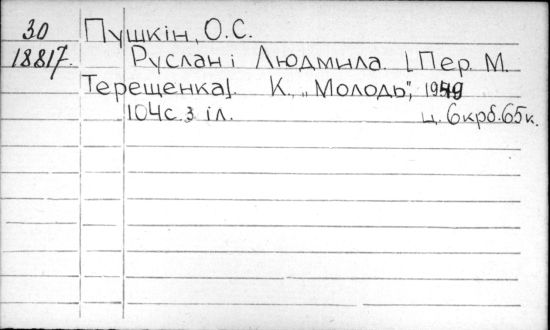 30 Пушкін, О.С.
18817. Руслан і Людмила. [Пер. М.
Терещенка]. К., „Молодь", 1949
104с. з іл. ц. 6крб.65к.